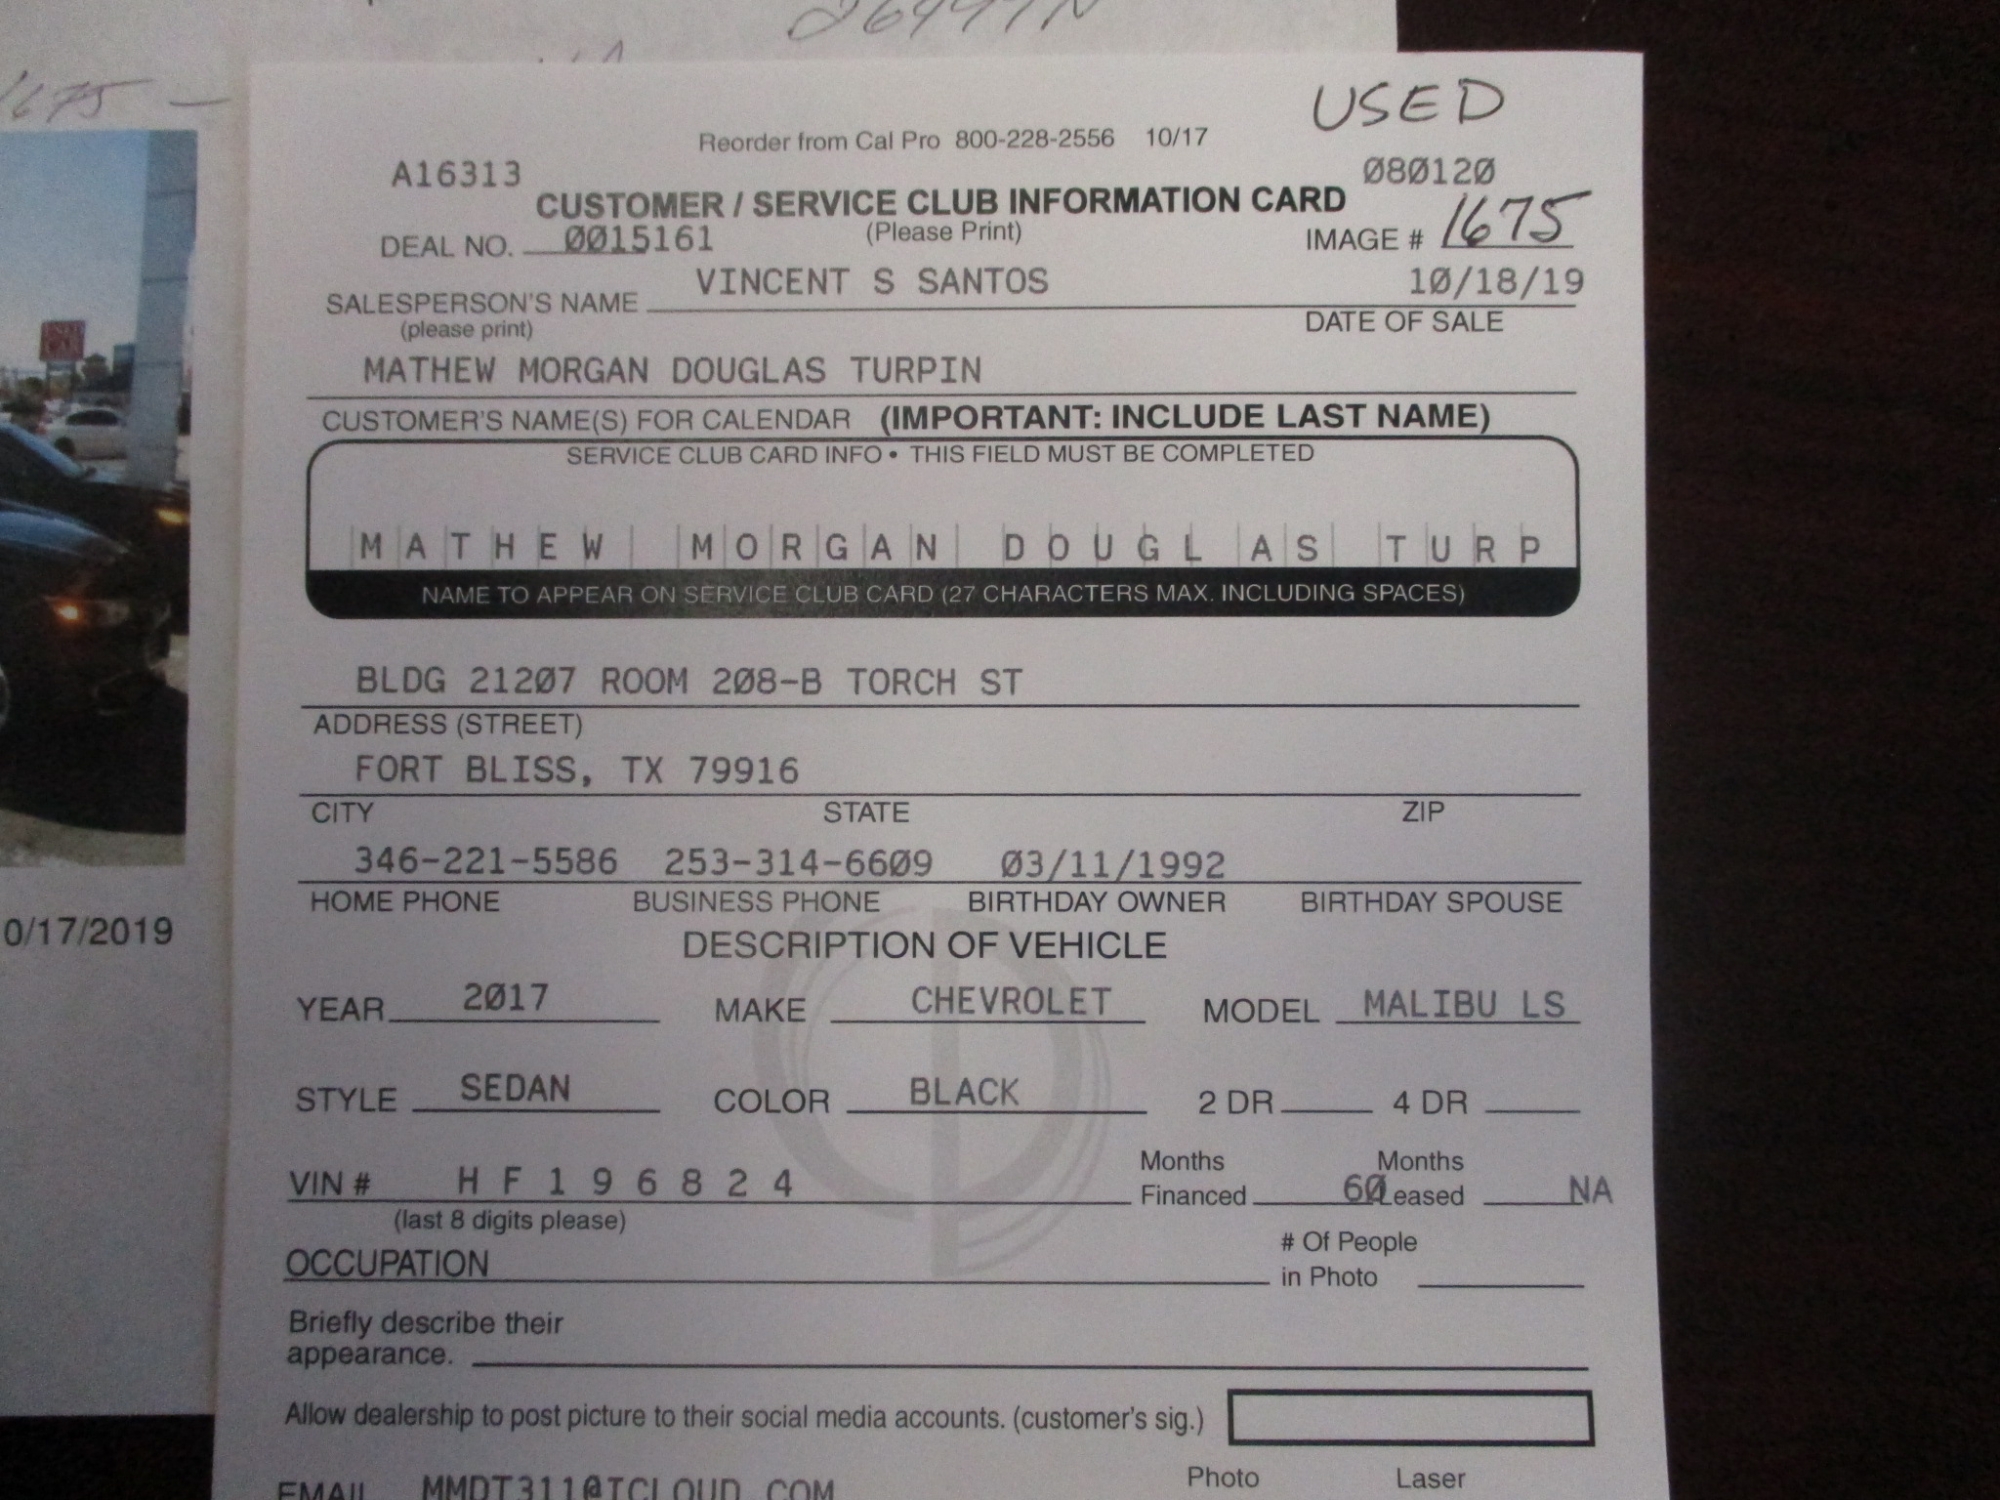 1675 —
0/17/2019
USED
Reorder from Cal Pro 800-228-2556 10/17
A16313 080120
CUSTOMER / SERVICE CLUB INFORMATION CARD
DEAL NO. 0015161 (Please Print) IMAGE # 1675
SALESPERSON'S NAME VINCENT S SANTOS 10/18/19
(please print) DATE OF SALE
MATHEW MORGAN DOUGLAS TURPIN
CUSTOMER'S NAME(S) FOR CALENDAR (IMPORTANT: INCLUDE LAST NAME)
SERVICE CLUB CARD INFO • THIS FIELD MUST BE COMPLETED
MATHEW MORGAN DOUGLAS TURP
NAME TO APPEAR ON SERVICE CLUB CARD (27 CHARACTERS MAX. INCLUDING SPACES)
BLDG 21207 ROOM 208-B TORCH ST
ADDRESS (STREET)
FORT BLISS, TX 79916
CITY STATE ZIP
346-221-5586 253-314-6609 03/11/1992
HOME PHONE BUSINESS PHONE BIRTHDAY OWNER BIRTHDAY SPOUSE
DESCRIPTION OF VEHICLE
YEAR 2017 MAKE CHEVROLET MODEL MALIBU LS
STYLE SEDAN COLOR BLACK 2 DR 4 DR
Months Months
VIN # HF196824 Financed 60 Leased NA
(last 8 digits please)
OCCUPATION # Of People
in Photo
Briefly describe their
appearance.
Allow dealership to post picture to their social media accounts. (customer's sig.)
Photo Laser
EMAIL MMDT311@ICLOUD.COM